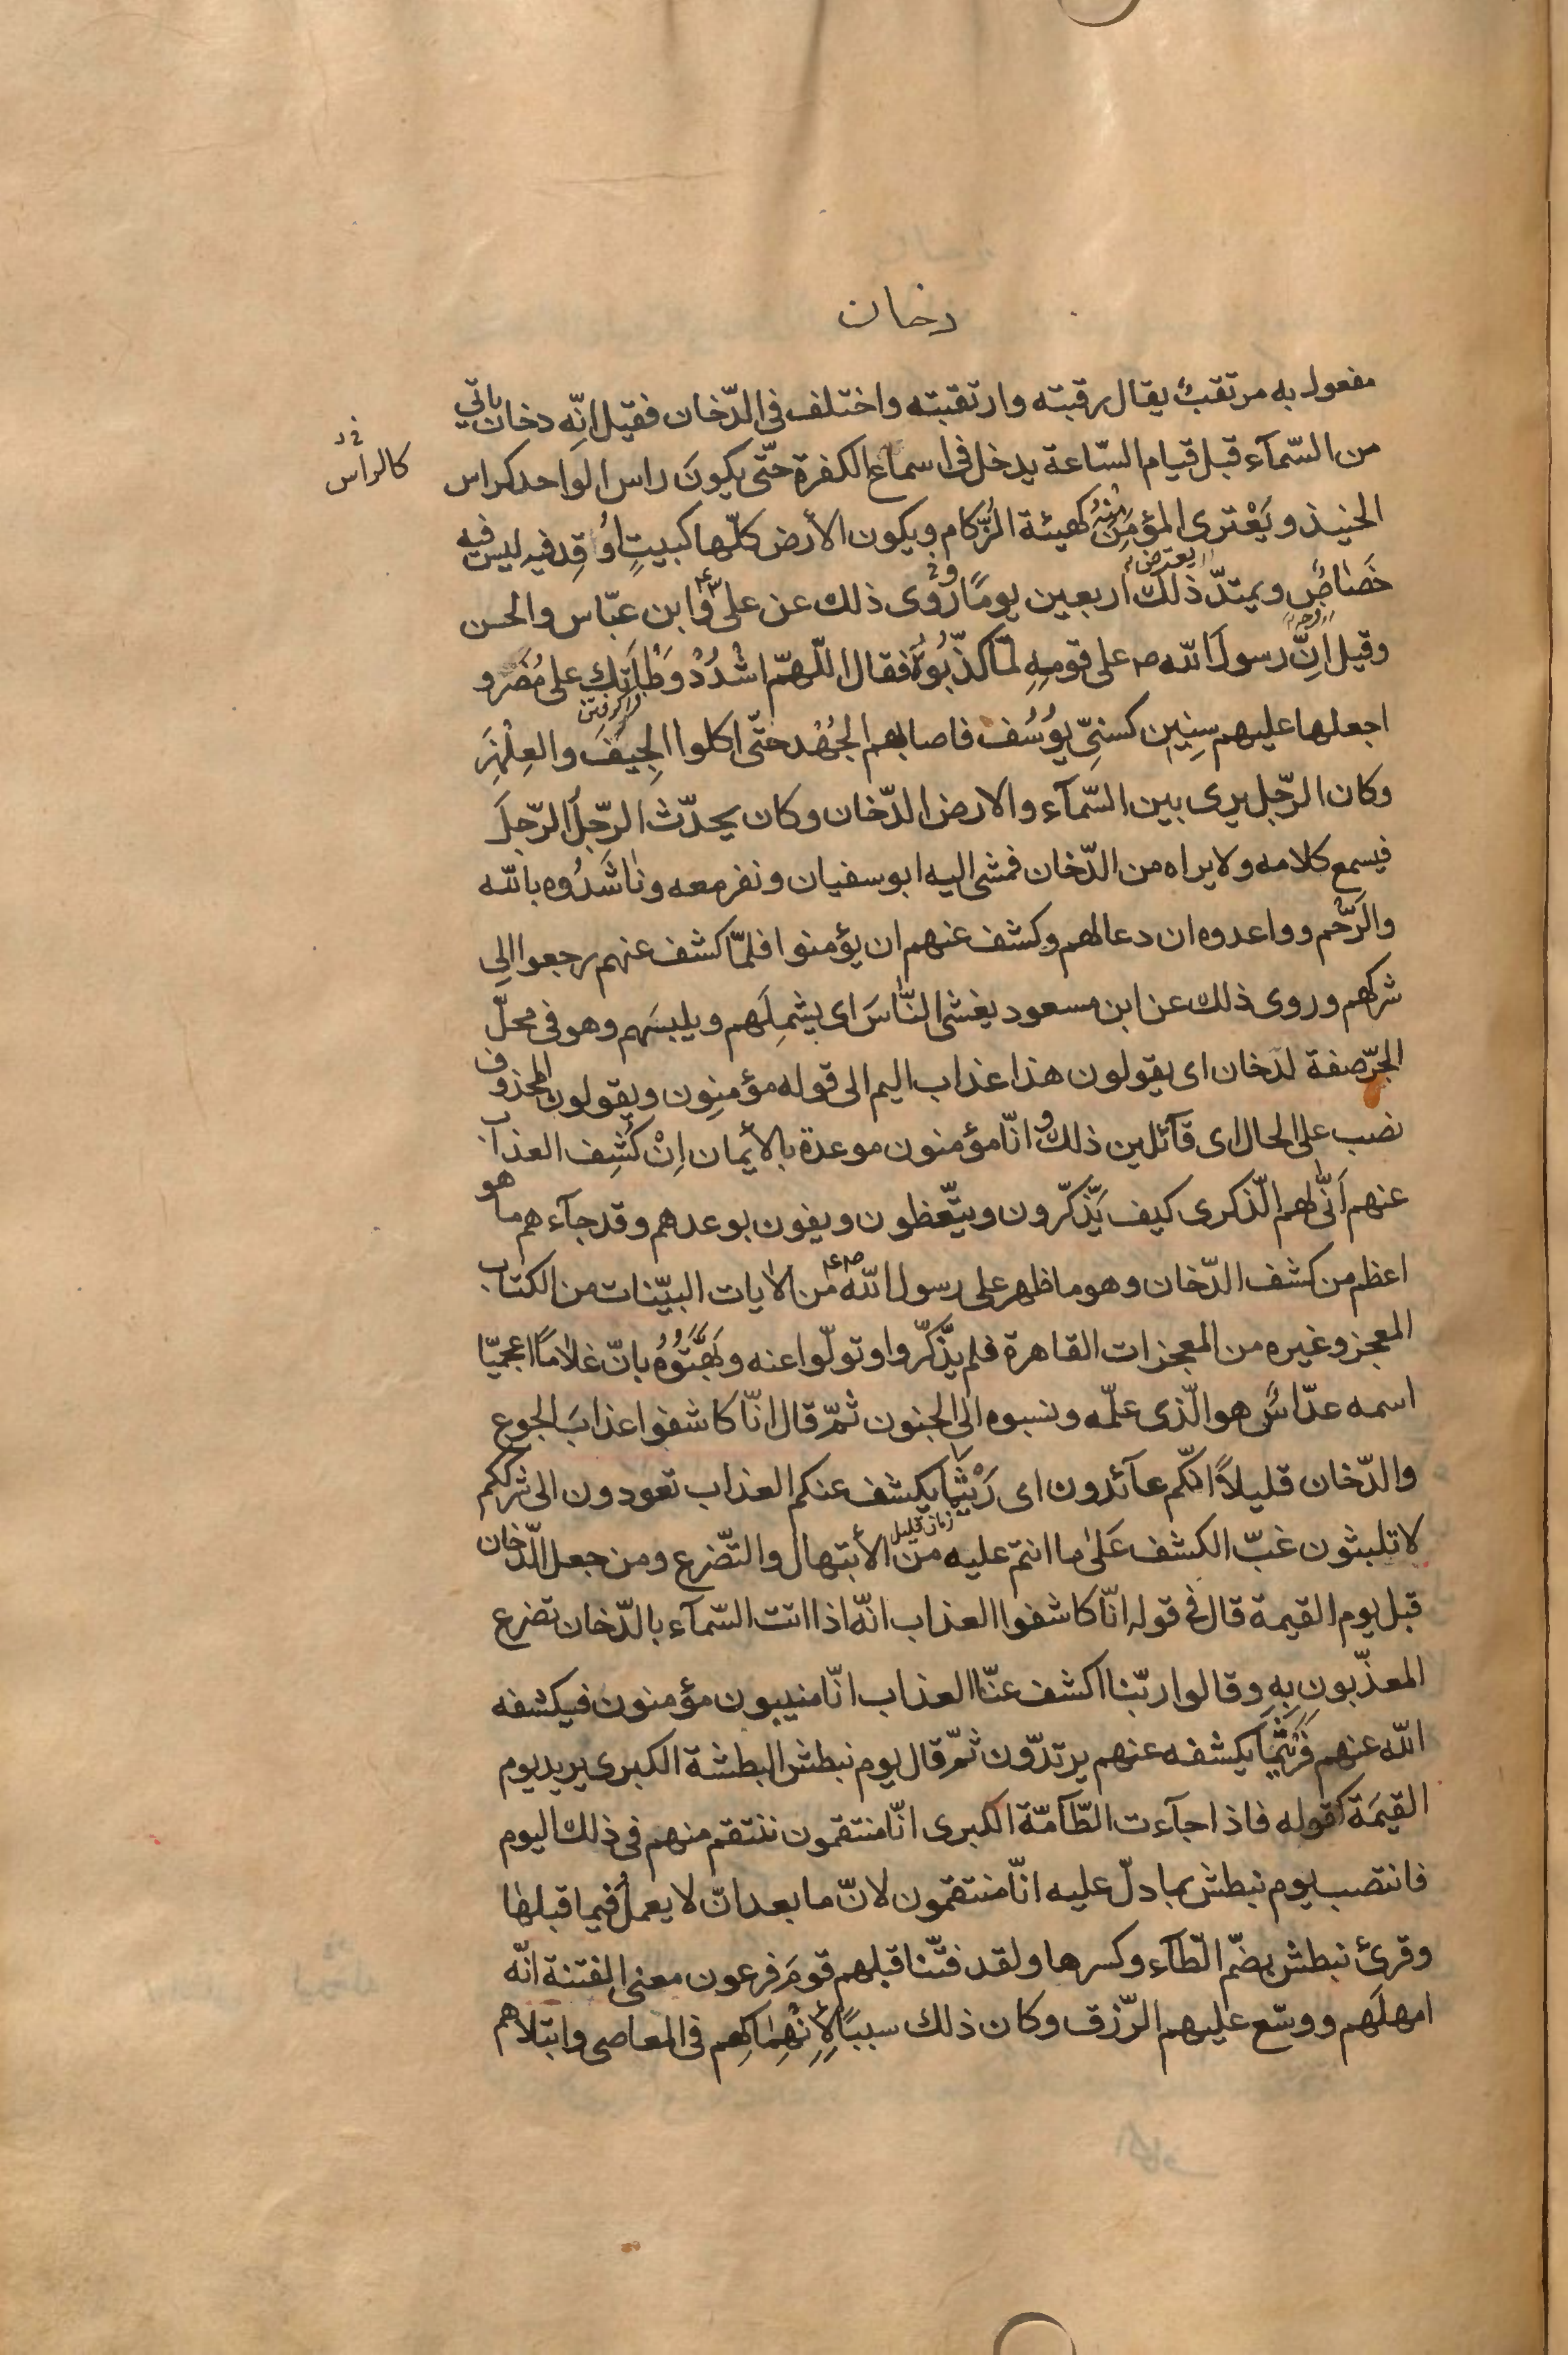 دخان
مفعول به مرتقب يقال رقبته وارتقبته واختلف فى الدّخان فقيل انّه دخان ياتي
من السّمآء قبل قيام السّاعة يدخل فى اسماع الكفرة حتّى يكونَ راس الواحد كراس
كالراس
الحنيذ ويَعْترى المؤمن منه كهيئة الزّكام ويكون الأرض كلّها كبيتٍ اُوقِد فيه ليس فيه
خَصَاصٌ ويمتدّ ذلك اربعين يومًا وروى ذلك عن على ع وابن عبّاس والحسن
وقيل انّ رسول الله ص على قومِهِ لمّا كذّبُوهُ فقال اللّهمّ اشْدُدْ وَطْأَتَك على مُضَر و
اجعلها عليهم سِنِين كسنىّ يُوسُف فاصابهم الجُهْد حتّى اكلوا الجِيَف والعِلْهِزَ
وكان الرّجل يرى بين السّمآء والارض الدّخان وكان يحدّث الرّجلُ الرّجلَ
فيسمع كلامه ولا يراه من الدّخان فمشى اليه ابو سفيان ونفر معه ونٰاشَدُوه بالله
والرَّحِم وواعدوه ان دعا لهم وكشف عنهم ان يؤمنوا فلمّا كشف عنهم رجعوا الى
شركهم وروى ذلك عن ابن مسعود يغشى النّاسَ اى يشملَهم ويلبسَهم وهو فى محلّ
الجرّ صفة لدخان اى يقولون هذا عذاب اليم الى قوله مؤمنون ويقولون المحذوف
نصب على الحال اى قآئلين ذلك و انّا مؤمنون موعدة بالأيمان اِنْ كُشِف العذاب
عنهم اَنّٰى لهم الّذكرى كيف يَذّكّرون ويتّعظون ويفون بوعدهم وقد جآءهم ما هو
اعظم من كشف الدّخان وهو ما ظهر على رسول الله ص ع من الآيات البيّنات من الكتاب
المعجز وغيره من المعجزات القاهرة فلم يذّكّروا وتولّوا عنه وبَهَّتُوهُ بانّ غلاماً اعجميّا
اسمه عدّاسٌ هو الّذى علّمه ونسبوه الى الجنون ثمّ قال انّا كاشفوا عذابَ الجوع
والدّخان قليلاً انّكم عآئدون اى رَيْثَما يكشف عنكم العذاب تعودون الى شرككم
زمان قليل
لا تلبثون غبّ الكشف عَلىٰ ما انتم عليه من الأبتهال والتّضرع ومن جعل الدّخان
قبل يوم القيمة قال فى قوله انّا كاشفوا العذاب انّه اذا اتت السّمآء بالدّخان تضرع
المعذّبون بِهِ وقالوا ربّنا اكشف عنّا العذاب انّا منيبون مؤمنون فيكشفه
الله عنهم فَرَيْثَما يكشفه عنهم يرتدّون ثمّ قال يوم نبطش البطشة الكبرى يريد يوم
القيمَة كقوله فاذا جآءت الطّآمّة الكبرى انّا منتقمون ننتقم منهم فى ذلك اليوم
فانتصب يوم نبطش بما دلّ عليه انّا منتقمون لانّ ما بعد انّ لا يعملُ فيما قبلها
وقرئ نبطش بضمّ الطّآء وكسرها ولقد فتنّا قبلهم قومَ فرعون معنى الفتنة انّه
امهلَهم ووسّع عليهم الرّزق وكان ذلك سببًا لِإِنْهِمٰاكِهِم فى المعاصى وابتلاهم